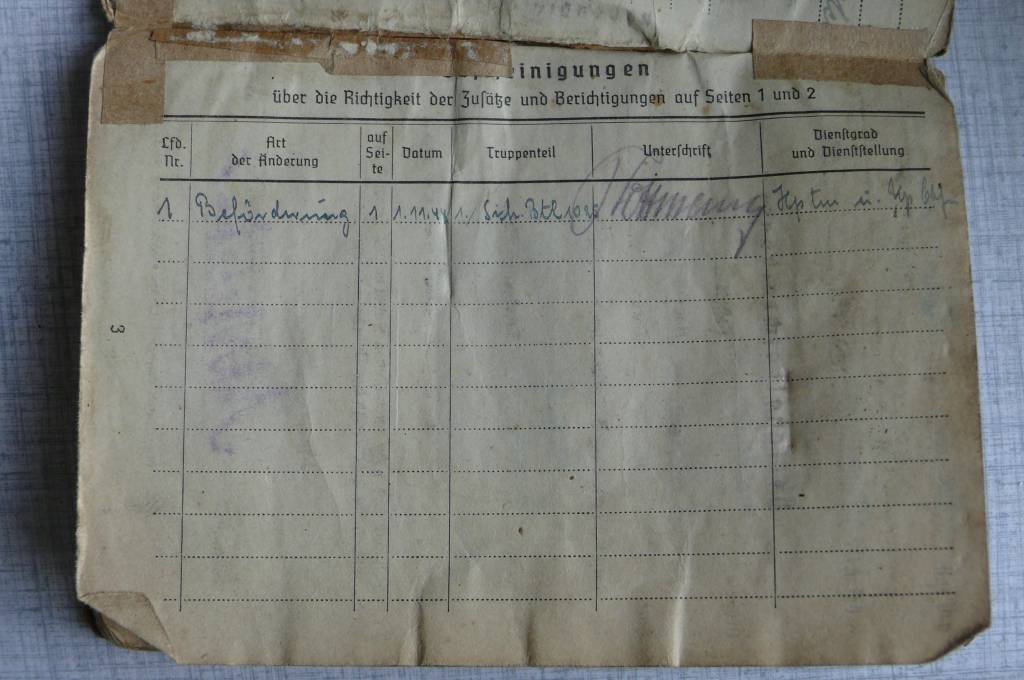 einigungen
über die Richtigkeit der Zusätze und Berichtigungen auf Seiten 1 und 2
Lfd. Nr. Art der Änderung auf Sei-te Datum Truppenteil Unterschrift Dienstgrad und Dienststellung
1 Beförderung 1 1.11.44 1./ Sich. Btl. Hptm u. Kp
3